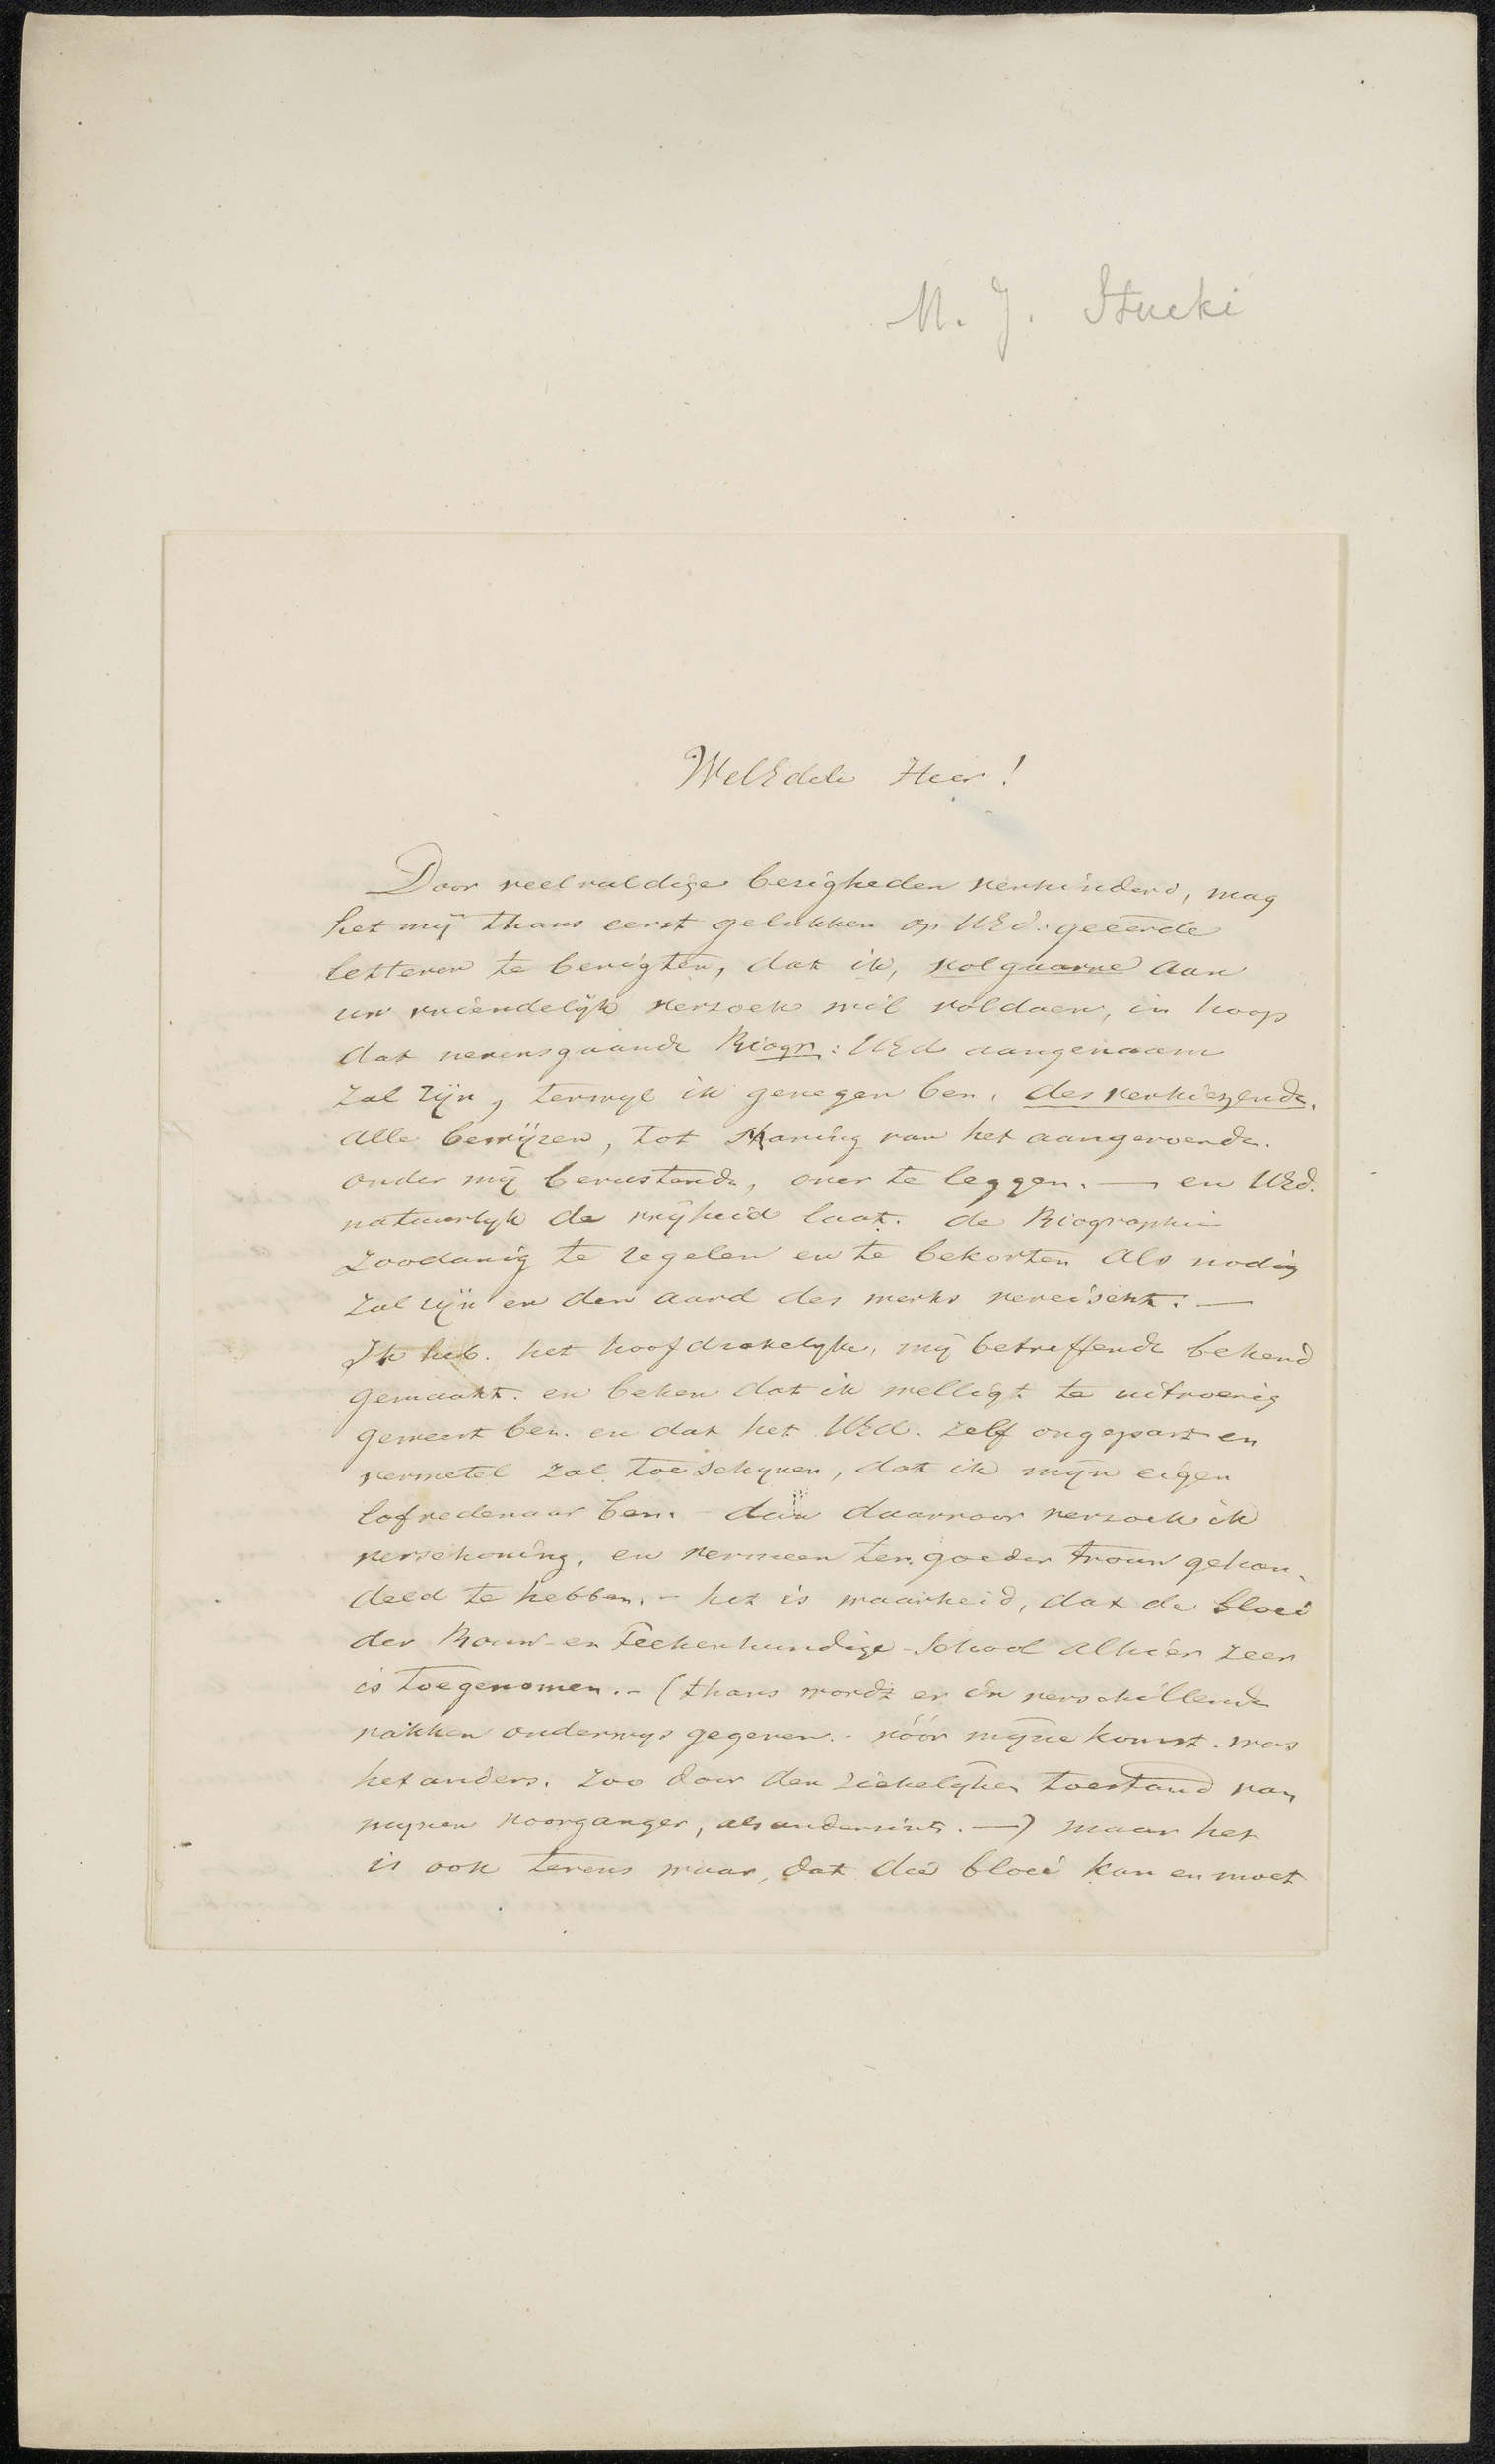 M. J. Stucki
WelEdele Heer!
Door veelvuldige bezigheden verhinderd, mag
het mij thans eerst gelukken op UEd: geëerde
letteren te berigten, dat ik, volgaarne aan
uw vriendelijk verzoek wil voldoen, in hoop
dat nevensgaande Biogr: UEd aangenaam
zal zijn, terwyl ik genegen ben, des verkiezende,
alle bewijzen, tot staving van het aangevoerde.
onder mij berustende, over te leggen. — en UEd.
natuurlyk de vrijheid laat. de Biographie
zoodanig te regelen en te bekorten als nodig
zal zijn en den aard des werks vereischt. —
Ik heb. het hoofdzakelyke, mij betreffende bekend
gemaakt. en beken dat ik welligt te uitvoerig
geweest ben. en dat het UEd. zelf ongepast en
vermetel zal toeschynen, dat ik mijn eigen
lofredenaar ben. - dan daarvoor verzoek ik
verschoning, en vermeen ter goeder trouw gehan-
deld te hebben. - het is waarheid, dat de bloei
der Bouw- en Teekenkundige-School alhier zeer
is toegenomen. - (thans wordt er in verschillende
vakken onderwys gegeven. - vóór mijne komst. was
het anders. zoo door den ziekelijken toestand van
mynen voorganger, als anderzints. —) maar het
is ook tevens waar, dat die bloei kan en moet